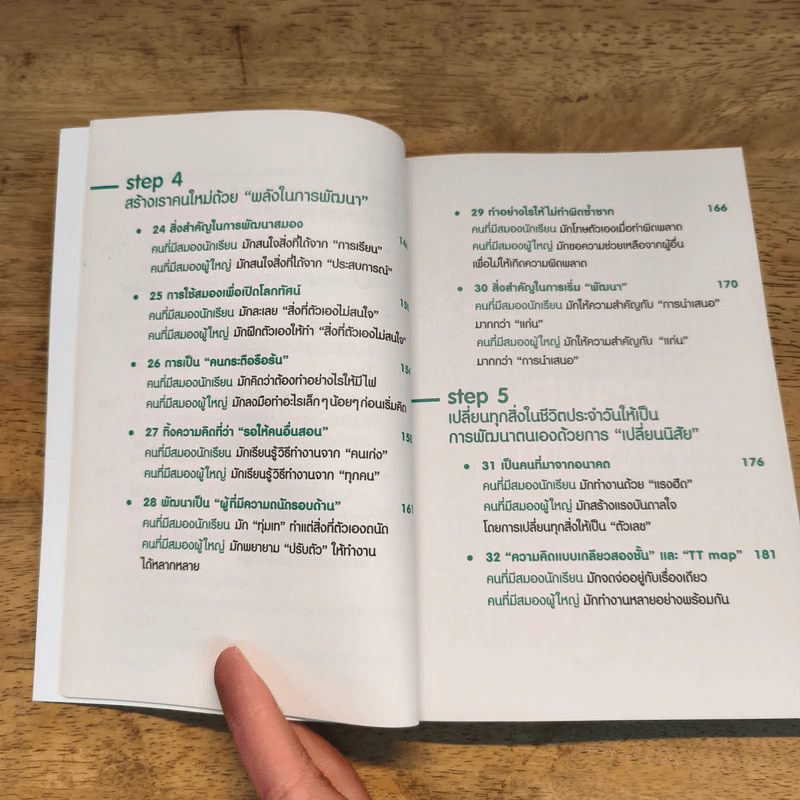 step 4
สร้างเราคนใหม่ด้วย “พลังในการพัฒนา”
• 24 สิ่งสำคัญในการพัฒนาสมอง
คนที่มีสมองนักเรียน มักสนใจสิ่งที่ได้จาก “การเรียน”
คนที่มีสมองผู้ใหญ่ มักสนใจสิ่งที่ได้จาก “ประสบการณ์”
• 25 การใช้สมองเพื่อเปิดโลกทัศน์
คนที่มีสมองนักเรียน มักละเลย “สิ่งที่ตัวเองไม่สนใจ”
คนที่มีสมองผู้ใหญ่ มักฝึกตัวเองให้ทำ “สิ่งที่ตัวเองไม่สนใจ”
• 26 การเป็น “คนกระตือรือร้น”
คนที่มีสมองนักเรียน มักคิดว่าต้องทำอย่างไรให้มีไฟ
คนที่มีสมองผู้ใหญ่ มักลงมือทำอะไรเล็กๆ น้อยๆ ก่อนเริ่มคิด
• 27 ทิ้งความคิดที่ว่า “รอให้คนอื่นสอน” 158
คนที่มีสมองนักเรียน มักเรียนรู้วิธีทำงานจาก “คนเก่ง”
คนที่มีสมองผู้ใหญ่ มักเรียนรู้วิธีทำงานจาก “ทุกคน”
• 28 พัฒนาเป็น “ผู้ที่มีความถนัดรอบด้าน” 161
คนที่มีสมองนักเรียน มัก “ทุ่มเท” ทำแต่สิ่งที่ตัวเองถนัด
คนที่มีสมองผู้ใหญ่ มักพยายาม “ปรับตัว” ให้ทำงาน
ได้หลากหลาย
• 29 ทำอย่างไรให้ไม่ทำผิดซ้ำซาก 166
คนที่มีสมองนักเรียน มักโทษตัวเองเมื่อทำผิดพลาด
คนที่มีสมองผู้ใหญ่ มักขอความช่วยเหลือจากผู้อื่น
เพื่อไม่ให้เกิดความผิดพลาด
• 30 สิ่งสำคัญในการเริ่ม “พัฒนา” 170
คนที่มีสมองนักเรียน มักให้ความสำคัญกับ “การนำเสนอ”
มากกว่า “แก่น”
คนที่มีสมองผู้ใหญ่ มักให้ความสำคัญกับ “แก่น”
มากกว่า “การนำเสนอ”
step 5
เปลี่ยนทุกสิ่งในชีวิตประจำวันให้เป็น
การพัฒนาตนเองด้วยการ “เปลี่ยนนิสัย”
• 31 เป็นคนที่มาจากอนาคต 176
คนที่มีสมองนักเรียน มักทำงานด้วย “แรงฮึด”
คนที่มีสมองผู้ใหญ่ มักสร้างแรงบันดาลใจ
โดยการเปลี่ยนทุกสิ่งให้เป็น “ตัวเลข”
• 32 “ความคิดแบบเกลียวสองชั้น” และ “TT map” 181
คนที่มีสมองนักเรียน มักจดจ่ออยู่กับเรื่องเดียว
คนที่มีสมองผู้ใหญ่ มักทำงานหลายอย่างพร้อมกัน